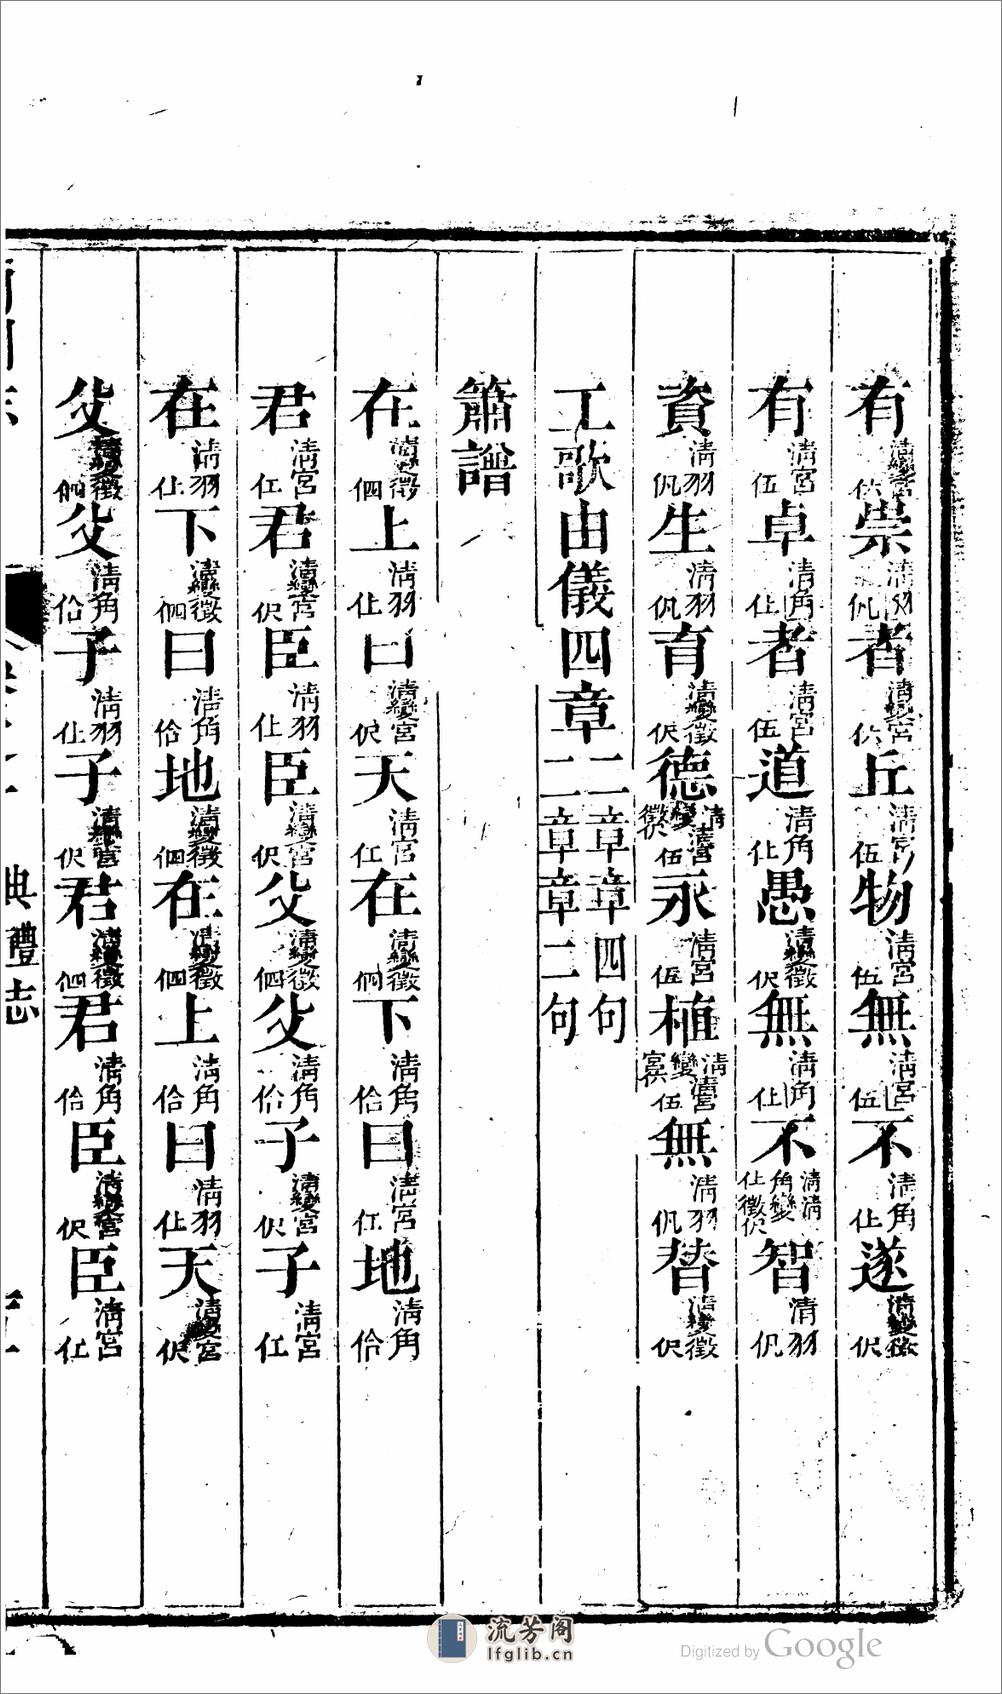 有清變宮崇清羽㐽者清變宮丘清宮伍物清宮伍無清宮伍不清角仩遂清變徵伬
有清宮伍卓清角仩者清宮伍道清角仩愚清變徵伬無清角仩不清角仩清變徵伬智清羽㐽
資清羽㐽生清羽㐽育清變徵伬德清變徵伬清宮伍永清宮伍植清變宮清宮伍無清羽㐽替清變徵伬
工歌由儀四章二章章四句二章章二句
簫譜
在清變徵伵上清羽仩曰清變宮伬天清宮仜在清變徵伵下清角佮曰清宮仜地清角佮
君清宮仜君清變宮伬臣清羽仩臣清變宮伬父清變徵伵父清角佮子清變宮伬子清宮仜
在清羽仩下清變徵伵曰清角佮地清變徵伵在清變徵伵上清角佮曰清羽仩天清變宮伬
父清變徵伵父清角佮子清羽仩子清變宮伬君清變徵伵君清角佮臣清變宮伬臣清宮仜
典禮志
流芳阁
lfglib.cn
Digitized by Google